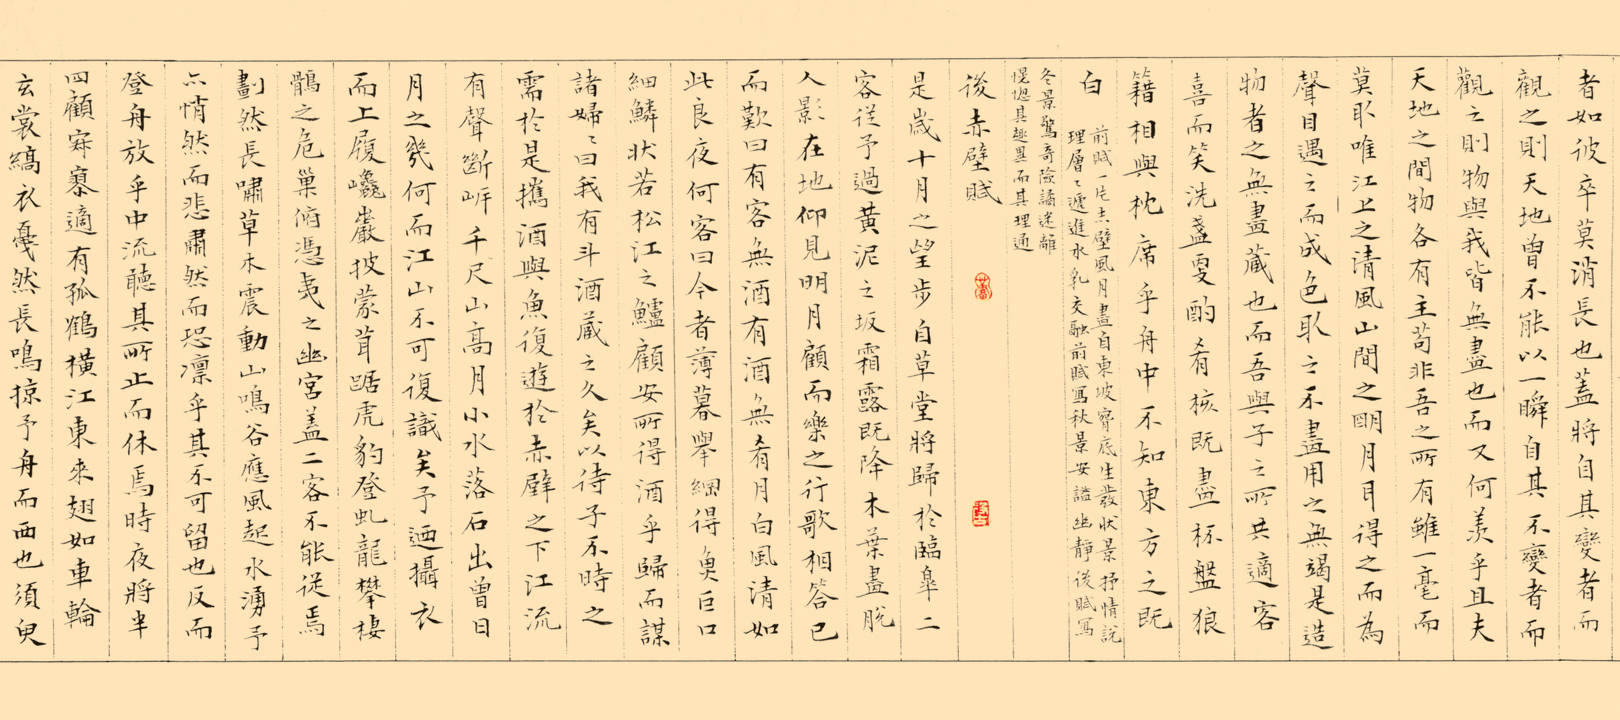 者如彼卒莫消長也蓋將自其變者而
觀之則天地曾不能以一瞬自其不變者而
觀之則物與我皆無盡也而又何羨乎且夫
天地之間物各有主苟非吾之所有雖一毫而
莫取唯江上之清風山間之明月耳得之而為
聲目遇之而成色取之不盡用之無竭是造
物者之無盡藏也而吾與子之所共適客
喜而笑洗盞更酌肴核既盡杯盤狼
籍相與枕席乎舟中不知東方之既
白
前賦一片赤壁風月盡自東坡胸底生發狀景抒情說
理層々遞進水乳交融前賦寫秋景安謐幽靜後賦寫
冬景驚奇險譎迷離
惺惚其趣異而其理通
後赤壁賦
是歲十月之望步自草堂將歸於臨皋二
客從予過黃泥之坂霜露既降木葉盡脫
人影在地仰見明月顧而樂之行歌相答已
而歎曰有客無酒有酒無肴月白風清如
此良夜何客曰今者薄暮舉網得魚巨口
細鱗狀若松江之鱸顧安所得酒乎歸而謀
諸婦々曰我有斗酒藏之久矣以待子不時之
需於是攜酒與魚復遊於赤壁之下江流
有聲斷岸千尺山高月小水落石出曾日
月之幾何而江山不可復識矣予迺攝衣
而上履巉巖披蒙茸踞虎豹登虬龍攀棲
鶻之危巢俯馮夷之幽宮蓋二客不能從焉
劃然長嘯草木震動山鳴谷應風起水湧予
亦悄然而悲肅然而恐凜乎其不可留也反而
登舟放乎中流聽其所止而休焉時夜將半
四顧寂寥適有孤鶴橫江東來翅如車輪
玄裳縞衣戛然長鳴掠予舟而西也須臾